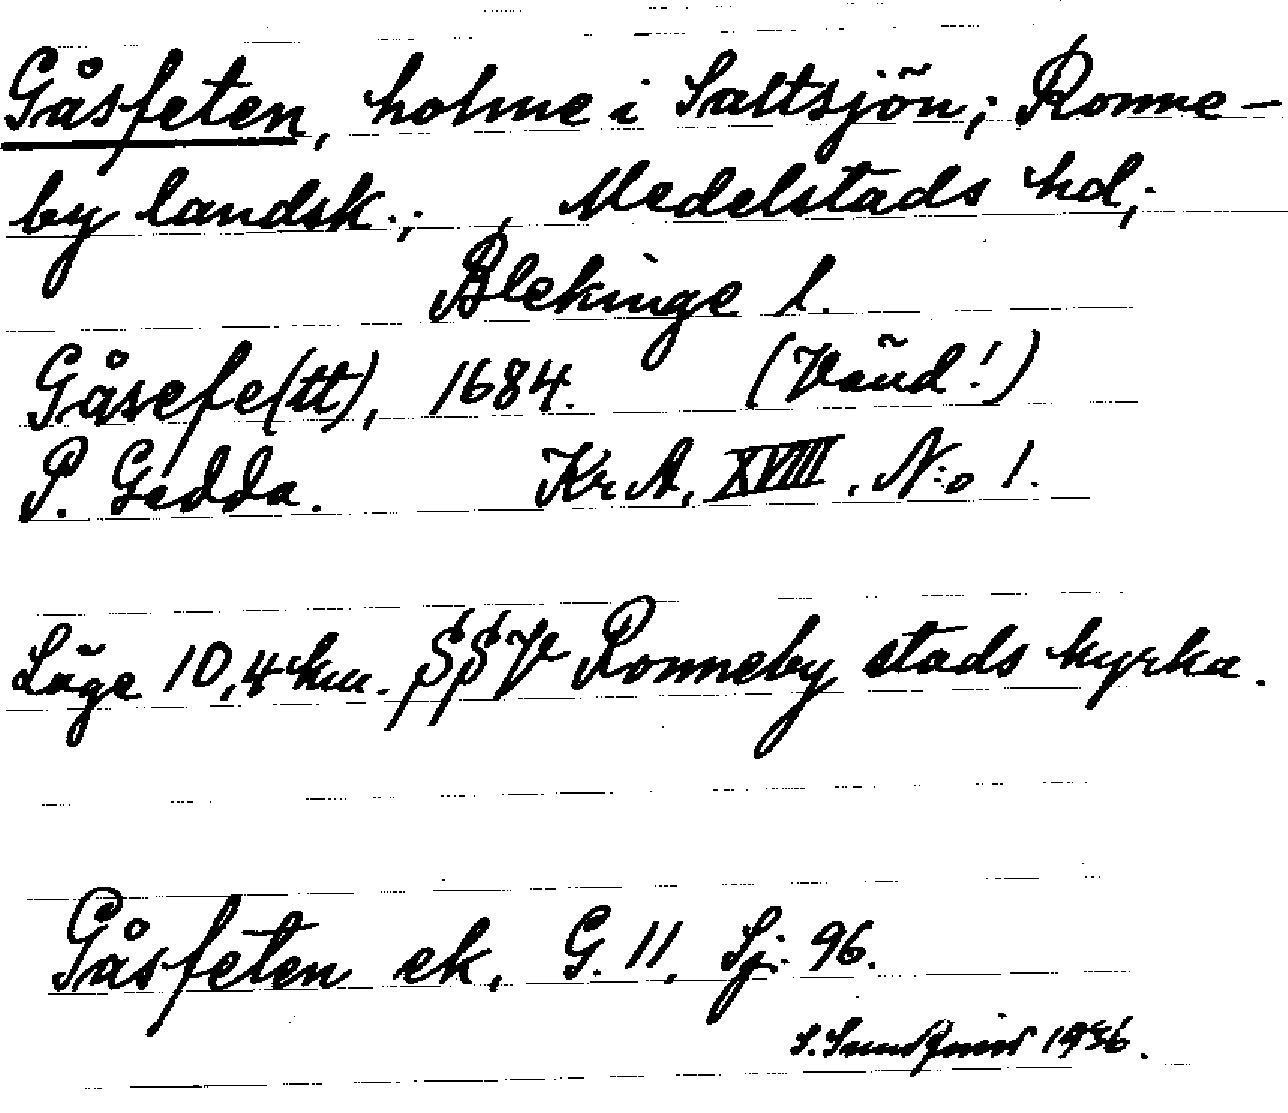 Gåsfeten, holme i Saltsjön; Ronne-
by landsk.; , Medelstads hd;
Blekinge l.
Gåsefe(tt), 1684. (Vänd!)
P. Gedda. Kr A, XVIII. N:o 1.
Läge 10,4 km. SSV Ronneby stads kyrka.
Gåsfeten ek, G. 11, Sj: 96.
S. 1936.